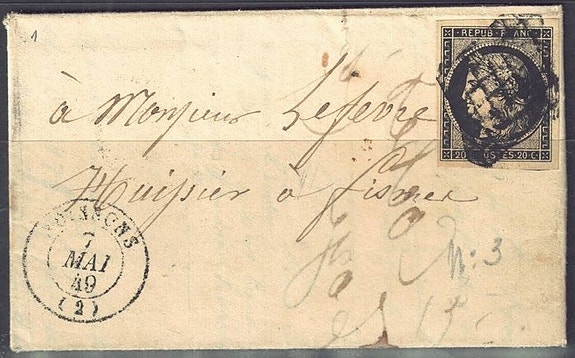 1
REPUB. FRANC.
20 POSTES 20 C
à Monsieur Lefevre
Huissier à fismes
SOISSONS
7
MAI
49
(2)
N: 3